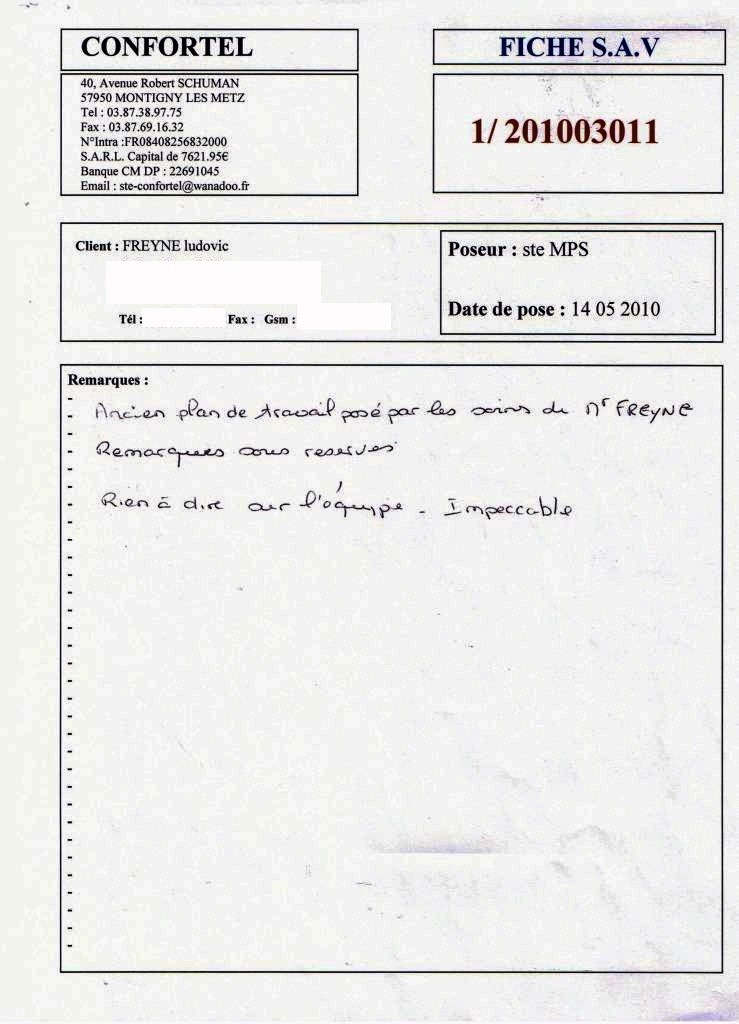 CONFORTEL
FICHE S.A.V
40, Avenue Robert SCHUMAN
57950 MONTIGNY LES METZ
Tel : 03.87.38.97.75
Fax : 03.87.69.16.32
N°Intra :FR08408256832000
S.A.R.L. Capital de 7621.95€
Banque CM DP : 22691045
Email : ste-confortel@wanadoo.fr
1/ 201003011
Client : FREYNE ludovic
Tél : Fax : Gsm :
Poseur : ste MPS
Date de pose : 14 05 2010
Remarques :
Ancien plan de travail posé par les soins de Mr FREYNE
Remarques sous reserves
Rien à dire sur l'équipe - Impeccable